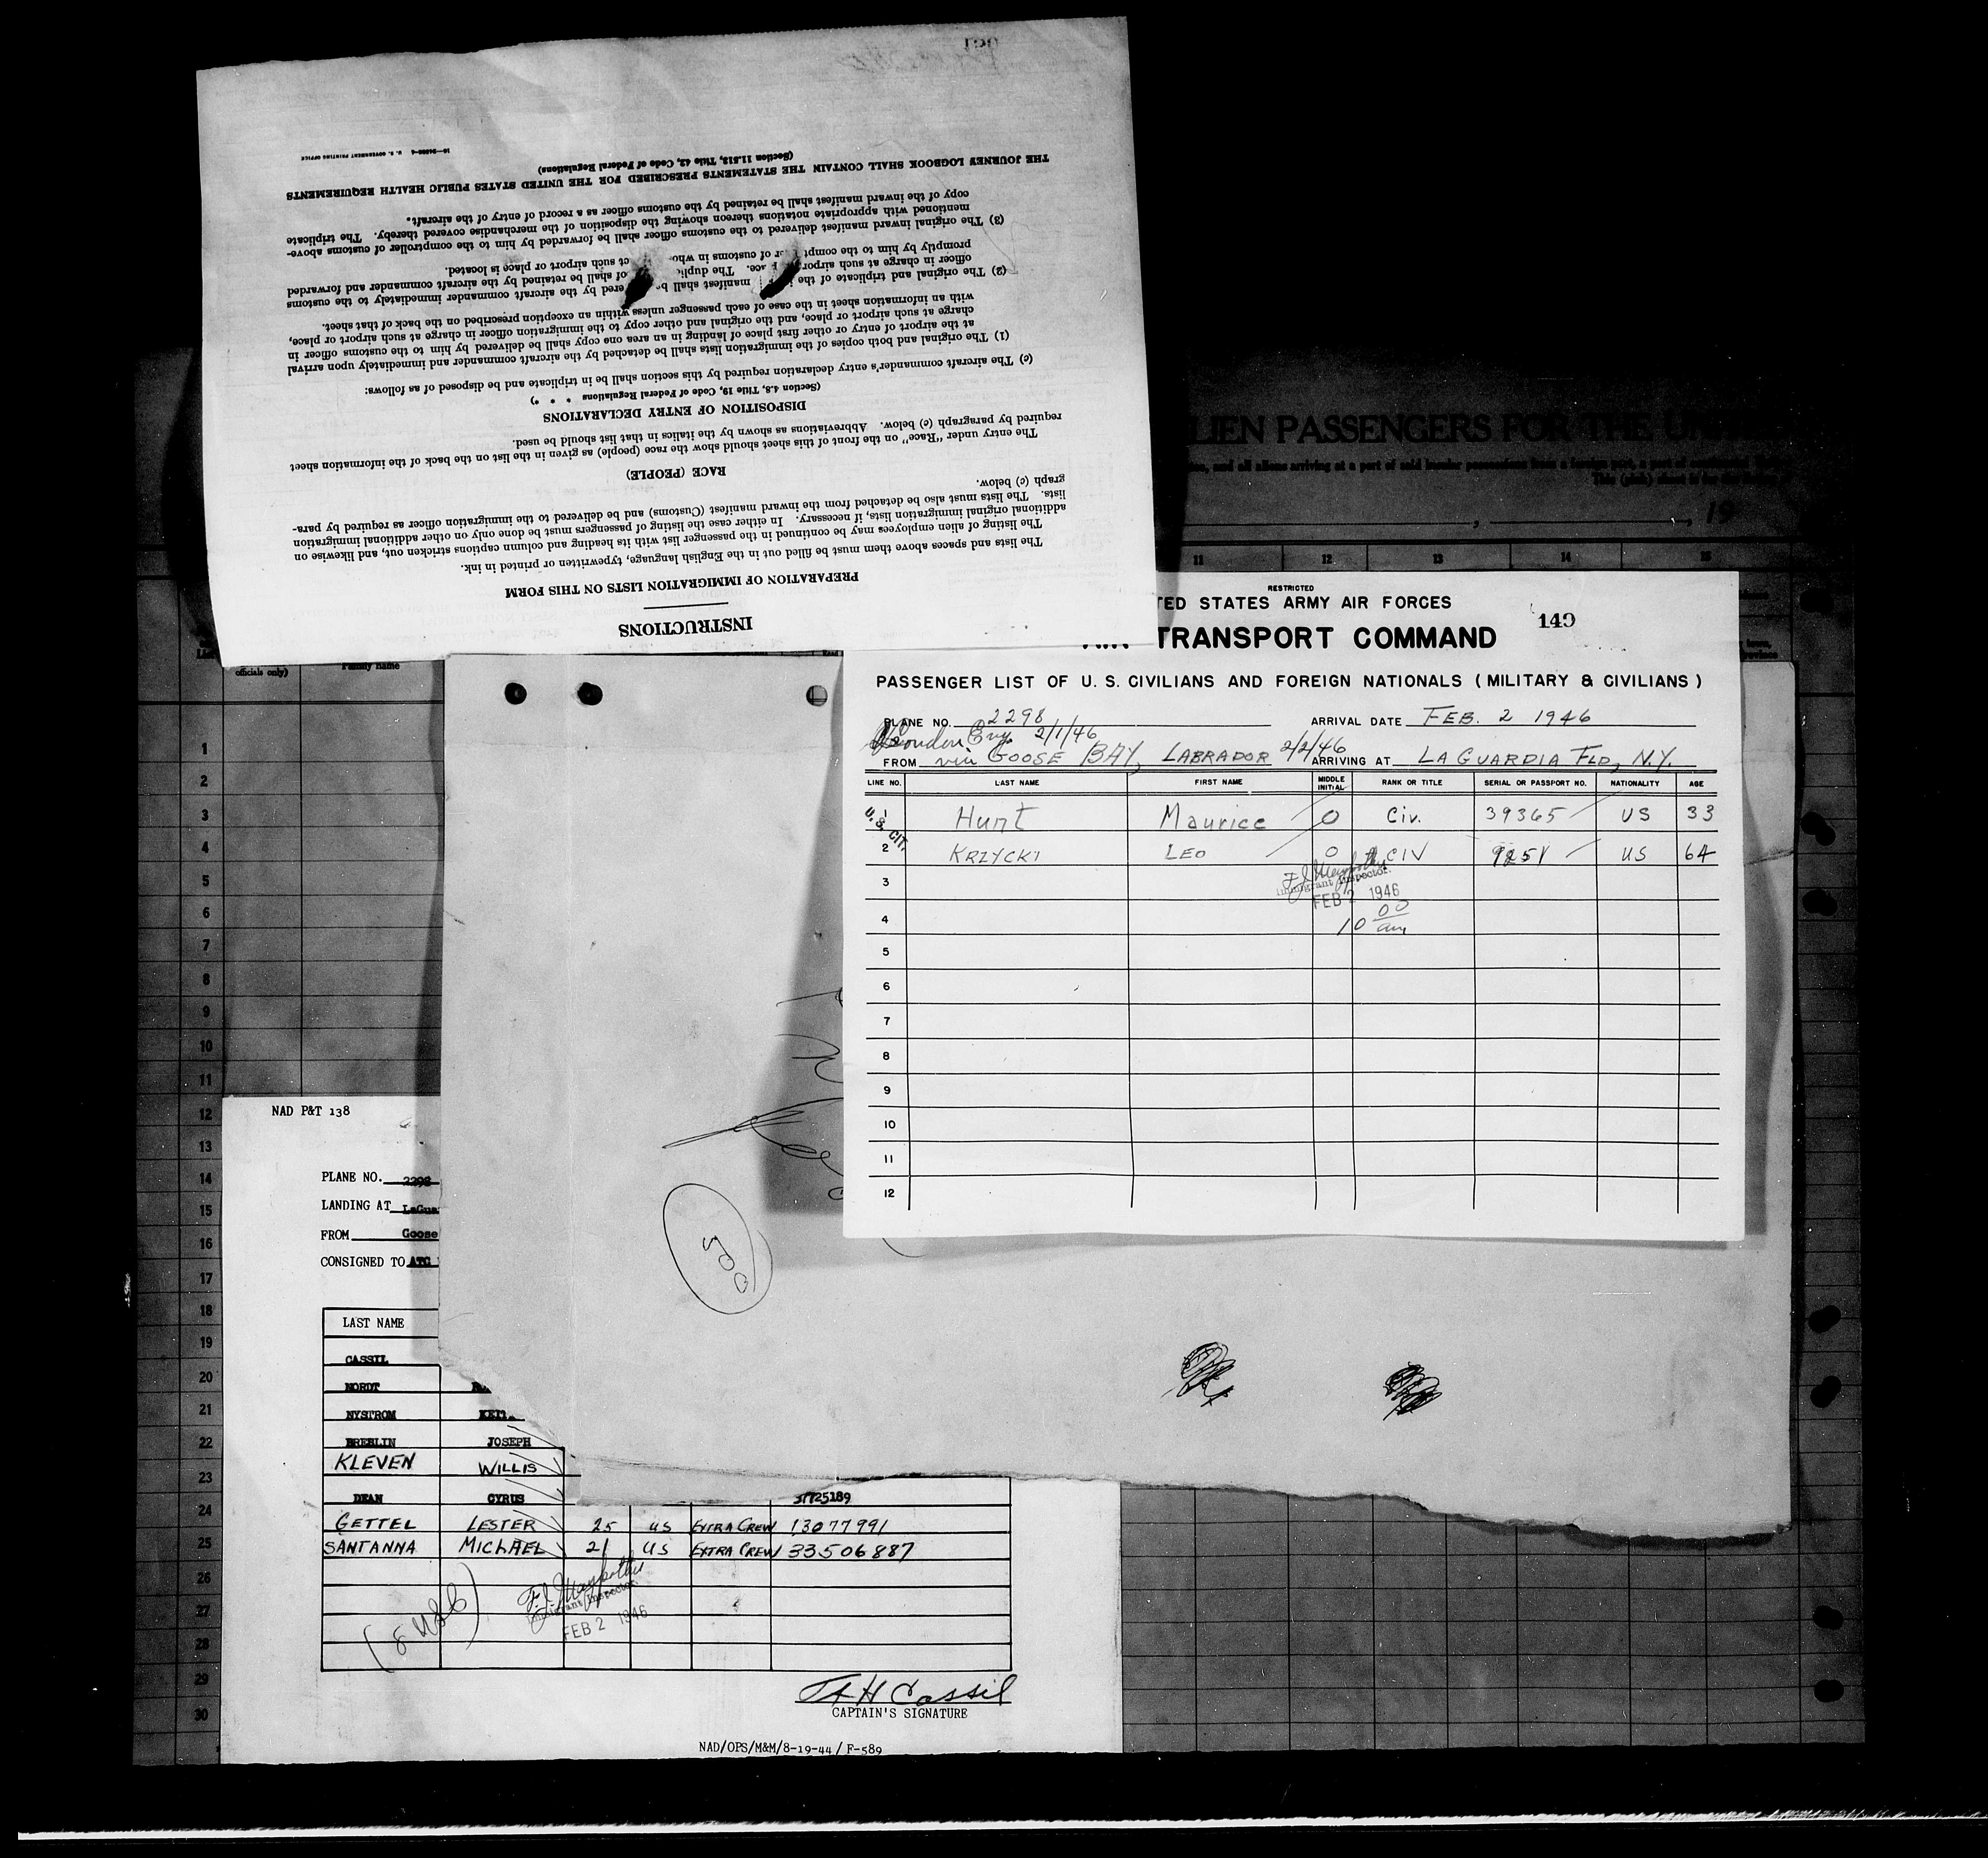 INSTRUCTIONS
PREPARATION OF IMMIGRATION LISTS ON THIS FORM
The lists and spaces above them must be filled out in the English language, typewritten or printed in ink.
The listing of alien employees may be continued in the passenger list with its heading and column captions stricken out, and likewise on
additional original immigration lists, if necessary. In either case the listing of passengers must be done only on other additional immigration
lists. The lists must also be detached from the inward manifest (Customs) and be delivered to the immigration officer as required by para-
graph (c) below.
RACE (PEOPLE)
The entry under "Race" on the front of this sheet should show the race (people) as given in the list on the back of the information sheet
required by paragraph (c) below. Abbreviations as shown by the italics in that list should be used.
DISPOSITION OF ENTRY DECLARATIONS
(Section 4.8, Title 19, Code of Federal Regulations * * *)
(c) The aircraft commander's entry declaration required by this section shall be in triplicate and be disposed of as follows:
(1) The original and both copies of the immigration lists shall be detached by the aircraft commander and immediately upon arrival
at the airport of entry or other first place of landing in an area one copy shall be delivered by him to the customs officer in
charge at such airport or place, and the original and other copy to the immigration officer in charge at such airport or place,
with an information sheet in the case of each passenger unless within an exception prescribed on the back of that sheet.
(2) The original and triplicate of the manifest shall be ered by the aircraft commander immediately to the customs
officer in charge at such airport ace. The dupli of shall be retained by the aircraft commander and forwarded
promptly by him to the compt r of customs in who ct such airport or place is located.
(3) The original inward manifest delivered to the customs officer shall be forwarded by him to the comptroller of customs above-
mentioned with appropriate notations thereon showing the disposition of the merchandise covered thereby. The triplicate
copy of the inward manifest shall be retained by the customs officer as a record of entry of the aircraft.
THE JOURNEY LOGBOOK SHALL CONTAIN THE STATEMENTS PRESCRIBED FOR THE UNITED STATES PUBLIC HEALTH REQUIREMENTS
(Section 11.513, Title 42, Code of Federal Regulations)
U. S. GOVERNMENT PRINTING OFFICE
LIEN PASSENGERS FOR THE UN
, and all aliens arriving at a port of said insular possessions from a foreign port, a port of continental
This (pink) sheet is for
, 19
11 12 13 14 15
officials only)
Family name
RESTRICTED
TED STATES ARMY AIR FORCES
149
TRANSPORT COMMAND
PASSENGER LIST OF U. S. CIVILIANS AND FOREIGN NATIONALS ( MILITARY & CIVILIANS )
PLANE NO. 2298 ARRIVAL DATE FEB. 2 1946
London Eng. 2/1/46
FROM via GOOSE BAY, LABRADOR 2/2/46 ARRIVING AT LA GUARDIA FLD, N.Y.
LINE NO. LAST NAME FIRST NAME MIDDLE INITIAL RANK OR TITLE SERIAL OR PASSPORT NO. NATIONALITY AGE
1 Hunt Maurice O Civ. 39365 US 33
U.S. CIT.
2 KRZYCKI LEO O CIV 9251 US 64
3
Immigrant Inspector.
FEB 2 1946
4
10 00 am
5
6
7
8
9
10
11
12
500
1
2
3
4
5
6
7
8
9
10
11
12
13
14
15
16
17
18
19
20
21
22
23
24
25
26
27
28
29
30
NAD P&T 138
PLANE NO. 2298
LANDING AT LaGua
FROM Goose
CONSIGNED TO ATC
LAST NAME
CASSIL
NORDT
NYSTROM KEIT
BREBLIN JOSEPH
KLEVEN WILLIS
DEAN CYRUS 37725189
GETTEL LESTER 25 US EXTRA CREW 13077991
SANTANNA MICHAEL 21 US EXTRA CREW 33506887
(8 USC)
Immigrant Inspector
FEB 2 1946
H Cassil
CAPTAIN'S SIGNATURE
NAD/OPS/M&M/8-19-44/ F-589